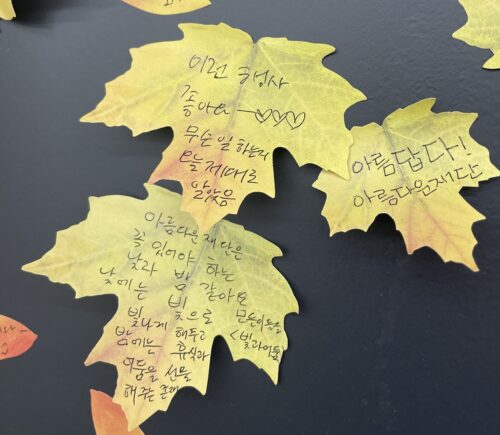 이런 행성사
좋아요
무슨 일 하는지
오늘 제대로
알았음
아름답다!
아름다운재단
아름다운 재단은
꼭 있어야 하는
낮과 밤 같아요
낮에는 빛으로
빛나게 해주고
밤에는 휴식과
어둠을 선물
해주는 존재